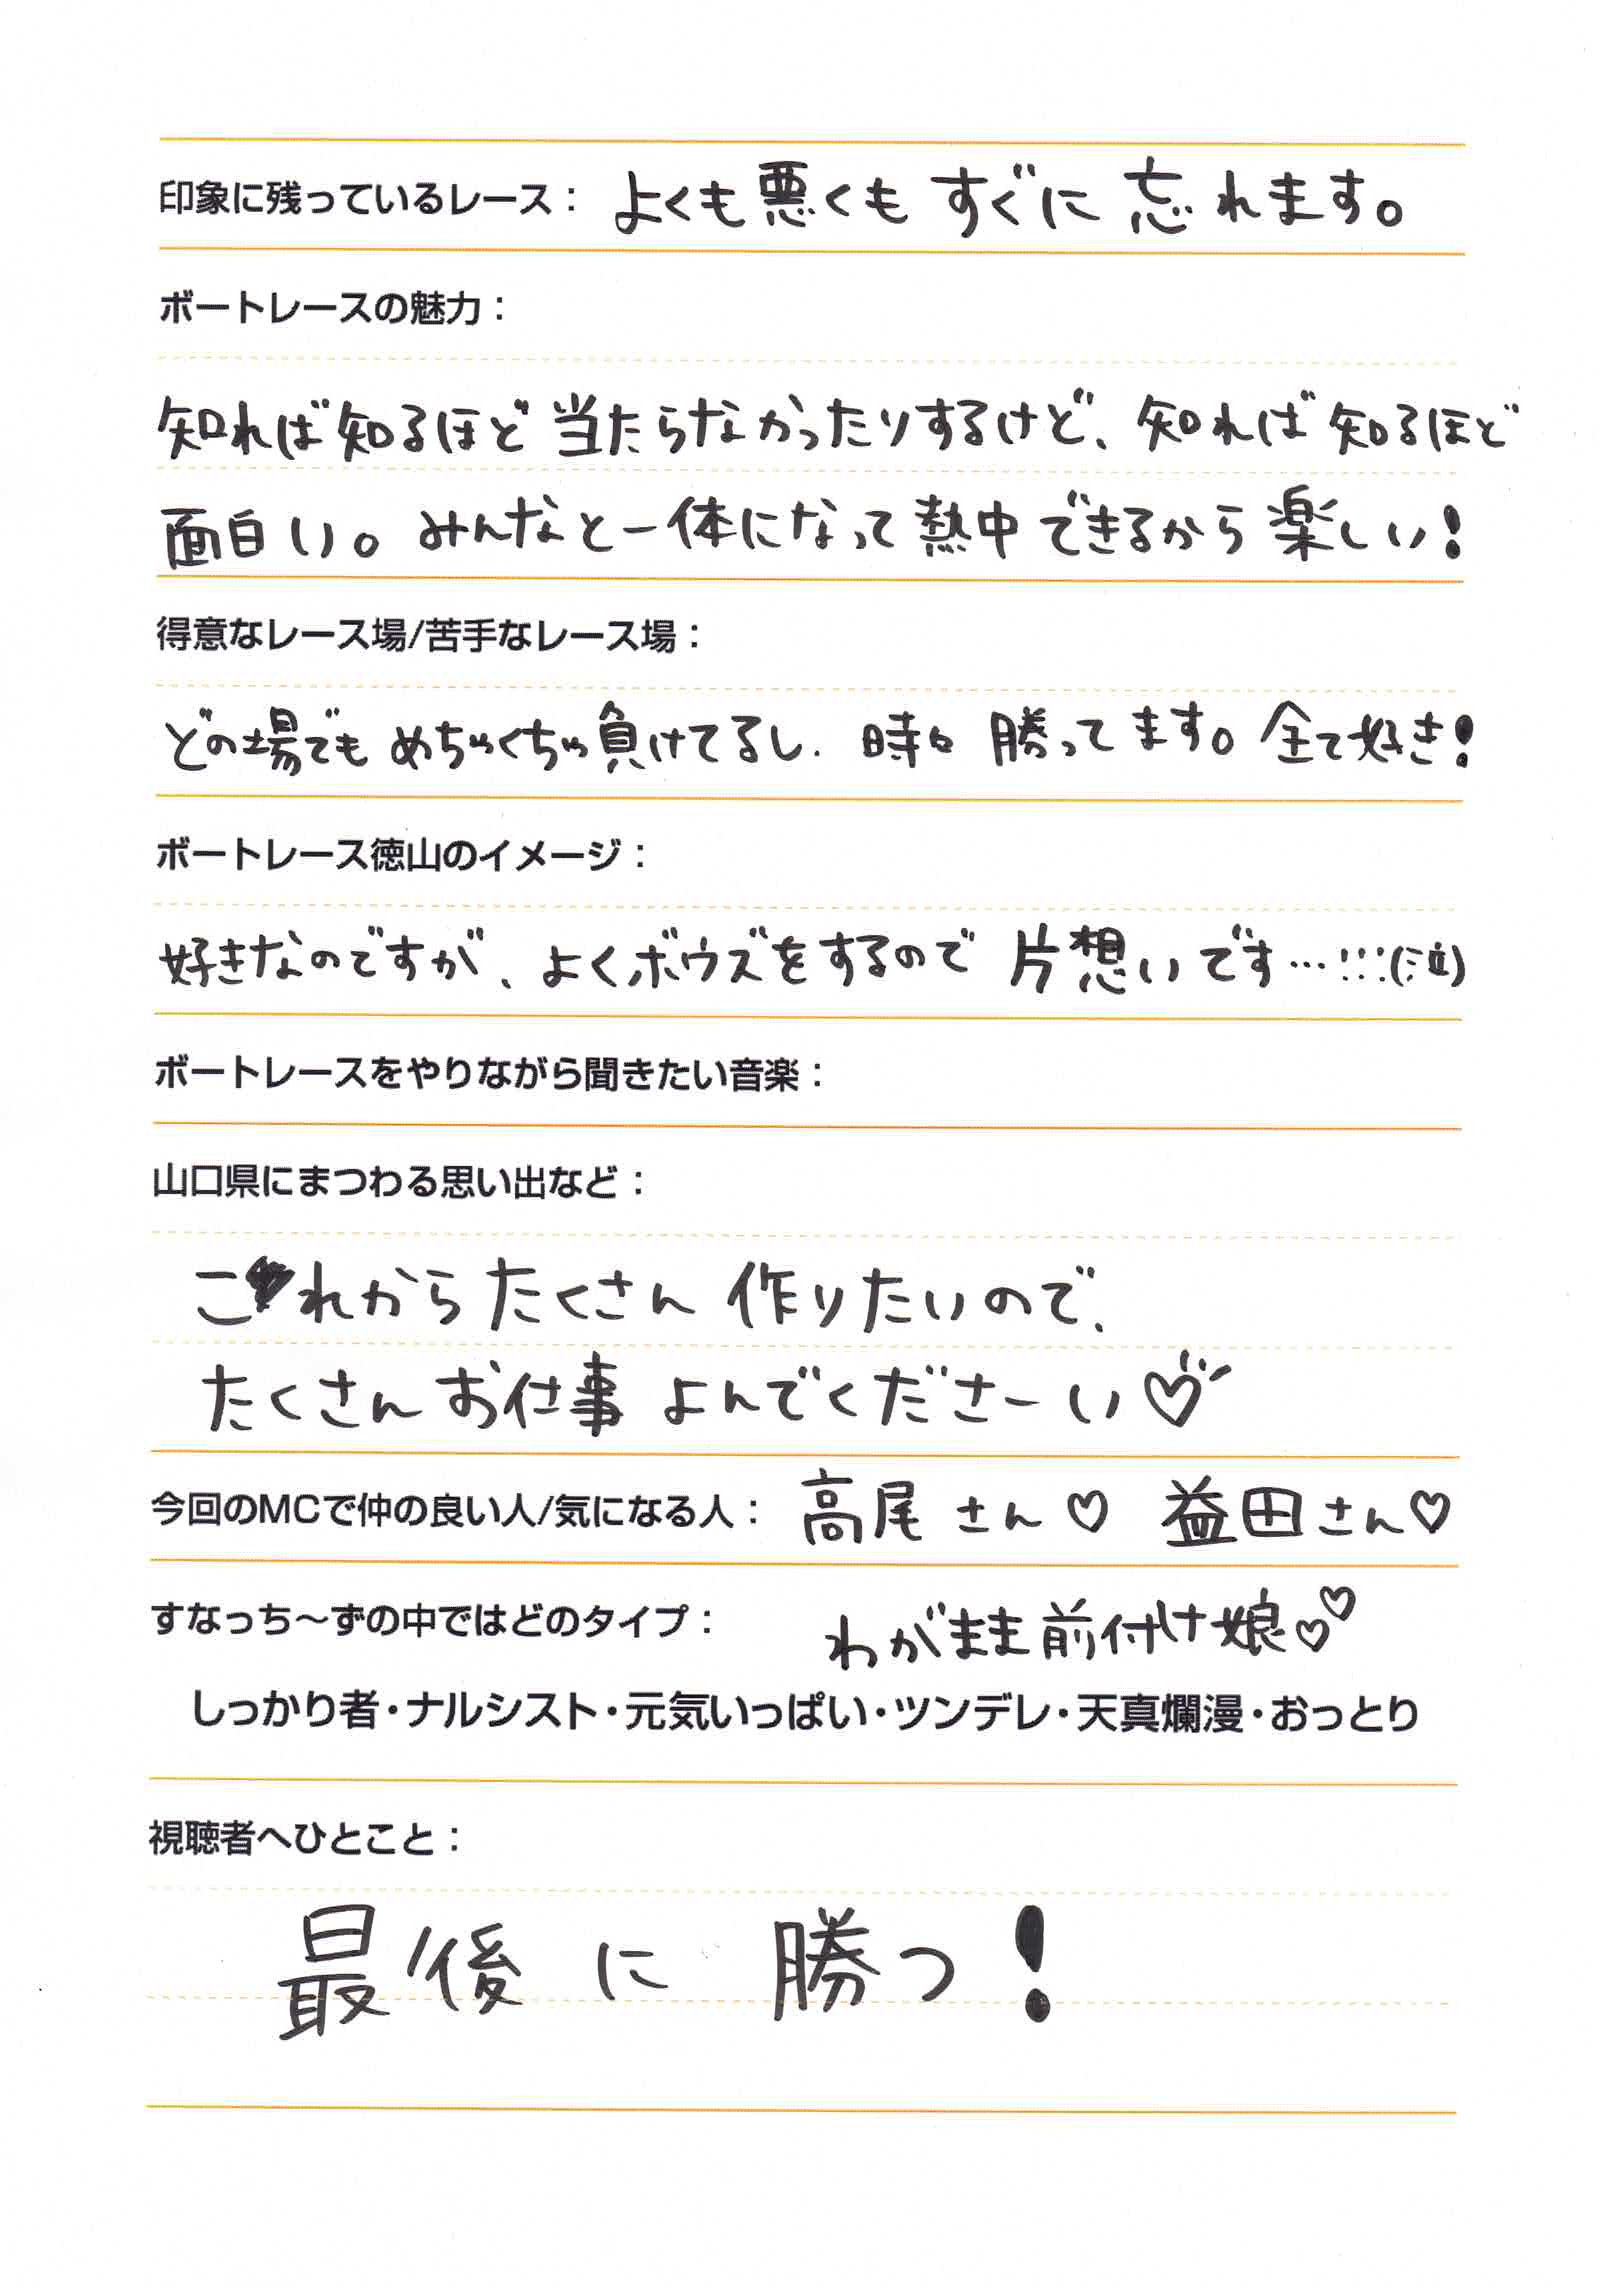 印象に残っているレース： よくも悪くもすぐに忘れます。
ボートレースの魅力：
知れば知るほど当たらなかったりするけど、知れば知るほど
面白い。みんなと一体になって熱中できるから楽しい！
得意なレース場/苦手なレース場：
どの場でもめちゃくちゃ負けてるし、時々勝ってます。全て好き！
ボートレース徳山のイメージ：
好きなのですが、よくボウズをするので片想いです…!!!(泣)
ボートレースをやりながら聞きたい音楽：
山口県にまつわる思い出など：
これからたくさん作りたいので、
たくさんお仕事よんでくださーい♡
今回のMCで仲の良い人/気になる人： 高尾さん♡ 益田さん♡
すなっち～ずの中ではどのタイプ： わがまま前付け娘♡♡
しっかり者・ナルシスト・元気いっぱい・ツンデレ・天真爛漫・おっとり
視聴者へひとこと：
最後に勝つ！